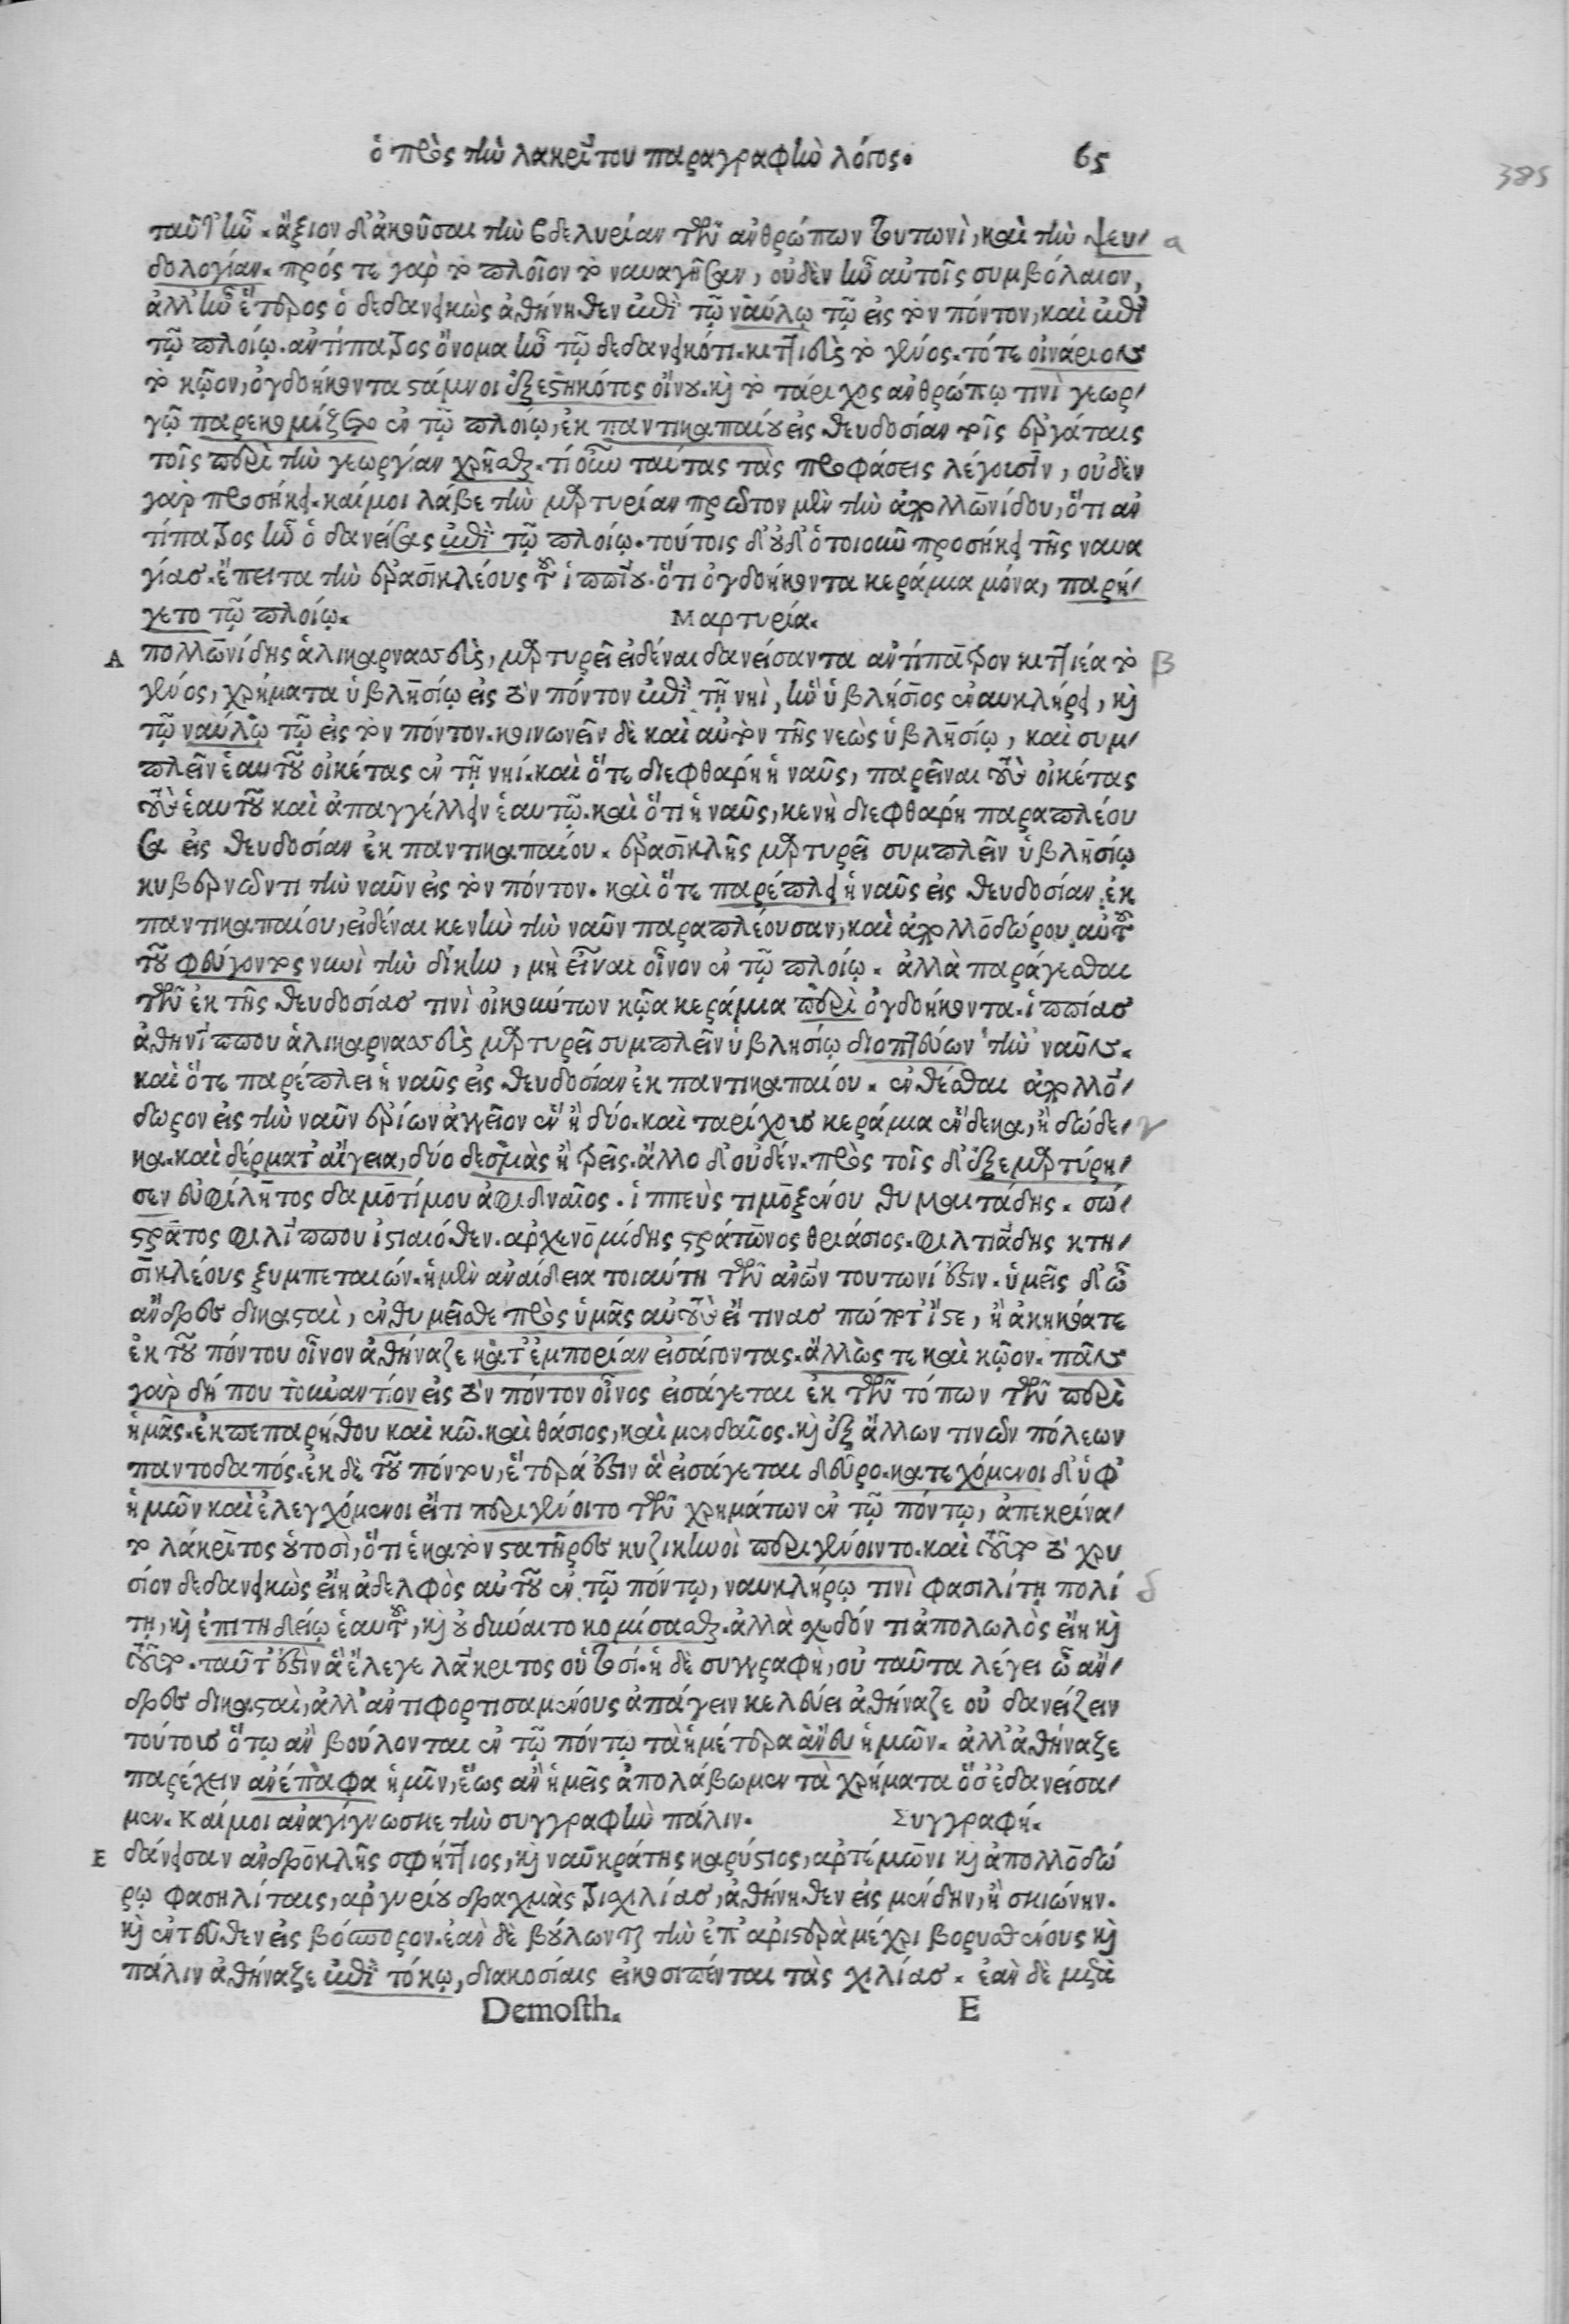 ὁ πρὸς τὴν λακρίτου παραγραφὴν λόγος. 65
385
ταῦτ' ἦν. ἄξιον δ' ἀκοῦσαι τὴν βδελυρίαν τῶν ἀνθρώπων τουτωνὶ, καὶ τὴν ψευ- a
δολογίαν. πρός τε γὰρ τὸ πλοῖον τὸ ναυαγῆσαν, οὐδὲν ἦν αὐτοῖς συμβόλαιον,
ἀλλ' ἦν ἕτερος ὁ δεδανεικὼς ἀθήνηθεν ἐπὶ τῷ ναύλῳ τῷ εἰς τὸν πόντον, καὶ ἐπὶ
τῷ πλοίῳ. ἀντίπατρος ὄνομα ἦν τῷ δεδανεικότι. κιτιεὺς τὸ γένος. τότε οἰνάριον
τὸ κῷον, ὀγδοήκοντα στάμνοι ἐξεστηκότος οἴνου. καὶ τὸ τάριχος ἀνθρώπῳ τινὶ γεωρ-
γῷ παρεκομίζετο ἐν τῷ πλοίῳ, ἐκ παντικαπαίου εἰς θευδοσίαν τοῖς ἐργάταις
τοῖς περὶ τὴν γεωργίαν χρῆσθαι. τί οὖν ταύτας τὰς προφάσεις λέγουσιν, οὐδὲν
γὰρ προσήκει. καίμοι λάβε τὴν μαρτυρίαν πρῶτον μὲν τὴν ἀπολλωνίδου, ὅτι ἀν
τίπατρος ἦν ὁ δανείσας ἐπὶ τῷ πλοίῳ. τούτοις δ' οὐδ' ὁτοιοῦν προσήκει τῆς ναυα
γίας. ἔπειτα τὴν ἐρασικλέους τοῦ ἱππίου. ὅτι ὀγδοήκοντα κεράμια μόνα, παρή-
γετο τῷ πλοίῳ. Μαρτυρία.
Α πολλωνίδης ἁλικαρνασσεὺς, μαρτυρεῖ εἰδέναι δανείσαντα ἀντίπατρον κιτιέα τὸ β
γένος, χρήματα ὑβλησίῳ εἰς τὸν πόντον ἐπὶ τῇ νηὶ, ἣν ὑβλήσιος ἐναυκλήρει, καὶ
τῷ ναύλῳ τῷ εἰς τὸν πόντον. κοινωνεῖν δὲ καὶ αὐτὸν τῆς νεὼς ὑβλησίῳ, καὶ συμ-
πλεῖν ἑαυτοῦ οἰκέτας ἐν τῇ νηί. καὶ ὅτε διεφθάρη ἡ ναῦς, παρεῖναι τοὺς οἰκέτας
τοὺς ἑαυτοῦ καὶ ἀπαγγέλλειν ἑαυτῷ. καὶ ὅτι ἡ ναῦς, κενὴ διεφθάρη παραπλέου
σα εἰς θευδοσίαν ἐκ παντικαπαίου. ἐρασικλῆς μαρτυρεῖ συμπλεῖν ὑβλησίῳ
κυβερνῶντι τὴν ναῦν εἰς τὸν πόντον. καὶ ὅτε παρέπλει ἡ ναῦς εἰς θευδοσίαν ἐκ
παντικαπαίου, εἰδέναι κενὴν τὴν ναῦν παραπλέουσαν, καὶ ἀπολλοδώρου αὐτοῦ
τοῦ φεύγοντος νυνὶ τὴν δίκην, μὴ εἶναι οἶνον ἐν τῷ πλοίῳ. ἀλλὰ παράγεσθαι
τῶν ἐκ τῆς θευδοσίας τινὶ οἰκούντων κῷα κεράμια περὶ ὀγδοήκοντα. ἱππίας
ἀθηνίππου ἁλικαρνασσεὺς μαρτυρεῖ συμπλεῖν ὑβλησίῳ διοπτεύων τὴν ναῦν.
καὶ ὅτε παρέπλει ἡ ναῦς εἰς θευδοσίαν ἐκ παντικαπαίου. ἐνθέσθαι ἀπολλό-
δωρον εἰς τὴν ναῦν ἐρίων ἀγγεῖον ἓν ἢ δύο. καὶ ταρίχους κεράμια ἕνδεκα, ἢ δώδε- γ
κα. καὶ δέρματ' αἴγεια, δύο δεσμὰς ἢ τρεῖς. ἄλλο δ' οὐδέν. πρὸς τοῖς δ' ἐξεμαρτύρη-
σεν εὐφίλητος δαμοτίμου ἀφιδναῖος. ἱππεὺς τιμοξένου θυμαιτάδης. σώ-
στρατος φιλίππου ἱστιαιόθεν. ἀρχενομίδης στράτωνος θριάσιος. φιλτιάδης κτη-
σικλέους ξυμπεταιών. ἡ μὲν ἀναίδεια τοιαύτη τῶν ἀνῶν τουτωνί ἐστιν. ὑμεῖς δ' ὦ
ἄνδρες δικασταὶ, ἐνθυμεῖσθε πρὸς ὑμᾶς αὐτοὺς εἴ τινας πώποτ' ἴστε, ἢ ἀκηκόατε
ἐκ τοῦ πόντου οἶνον ἀθήναζε κατ' ἐμπορίαν εἰσάγοντας. ἄλλως τε καὶ κῷον. πᾶν
γὰρ δή που τοὐναντίον εἰς τὸν πόντον οἶνος εἰσάγεται ἐκ τῶν τόπων τῶν περὶ
ἡμᾶς. ἐκ πεπαρήθου καὶ κῶ. καὶ θάσιος, καὶ μενδαῖος. καὶ ἐξ ἄλλων τινῶν πόλεων
παντοδαπός. ἐκ δὲ τοῦ πόντου, ἕτερά ἐστιν ἃ εἰσάγεται δεῦρο. κατεχόμενοι δ' ὑφ'
ἡμῶν καὶ ἐλεγχόμενοι εἴτι περιγένοιτο τῶν χρημάτων ἐν τῷ πόντῳ, ἀπεκρίνα-
το λάκριτος οὑτοσὶ, ὅτι ἑκατὸν στατῆρες κυζικηνοὶ περιγένοιντο. καὶ τοῦτο τὸ χρυ
σίον δεδανεικὼς εἴη ἀδελφὸς αὐτοῦ ἐν τῷ πόντῳ, ναυκλήρῳ τινὶ φασιλίτῃ πολί δ
τῃ, καὶ ἐπιτηδείῳ ἑαυτοῦ, καὶ οὐ δύναιτο κομίσασθαι. ἀλλὰ σχεδόν τι ἀπολωλὸς εἴη καὶ
τοῦτο. ταῦτ' ἐστὶν ἃ ἔλεγε λάκριτος οὑτοσί. ἡ δὲ συγγραφὴ, οὐ ταῦτα λέγει ὦ ἄν-
δρες δικασταὶ, ἀλλ' ἀντιφορτισαμένους ἀπάγειν κελεύει ἀθήναζε οὐ δανείζειν
τούτους ὅτῳ ἂν βούλονται ἐν τῷ πόντῳ τὰ ἡμέτερα ἄνευ ἡμῶν. ἀλλ' ἀθήναζε
παρέχειν ἀνέπαφα ἡμῖν, ἕως ἂν ἡμεῖς ἀπολάβωμεν τὰ χρήματα ὅσ' ἐδανείσα-
μεν. καίμοι ἀναγίγνωσκε τὴν συγγραφὴν πάλιν. Συγγραφή.
Ε δάνεισαν ἀνδροκλῆς σφήττιος, καὶ ναυκράτης καρύστιος, ἀρτέμωνι καὶ ἀπολλοδώ
ρῳ φασηλίταις, ἀργυρίου δραχμὰς τρισχιλίας, ἀθήνηθεν εἰς μένδην, ἢ σκιώνην.
καὶ ἐντεῦθεν εἰς βόσπορον. ἐὰν δὲ βούλωνται τὴν ἐπ' ἀριστερὰ μέχρι βορυσθένους καὶ
πάλιν ἀθήναζε ἐπὶ τόκῳ, διακοσίαις εἰκοσιπένται τὰς χιλίας. ἐὰν δὲ μετὰ
Demosth. E